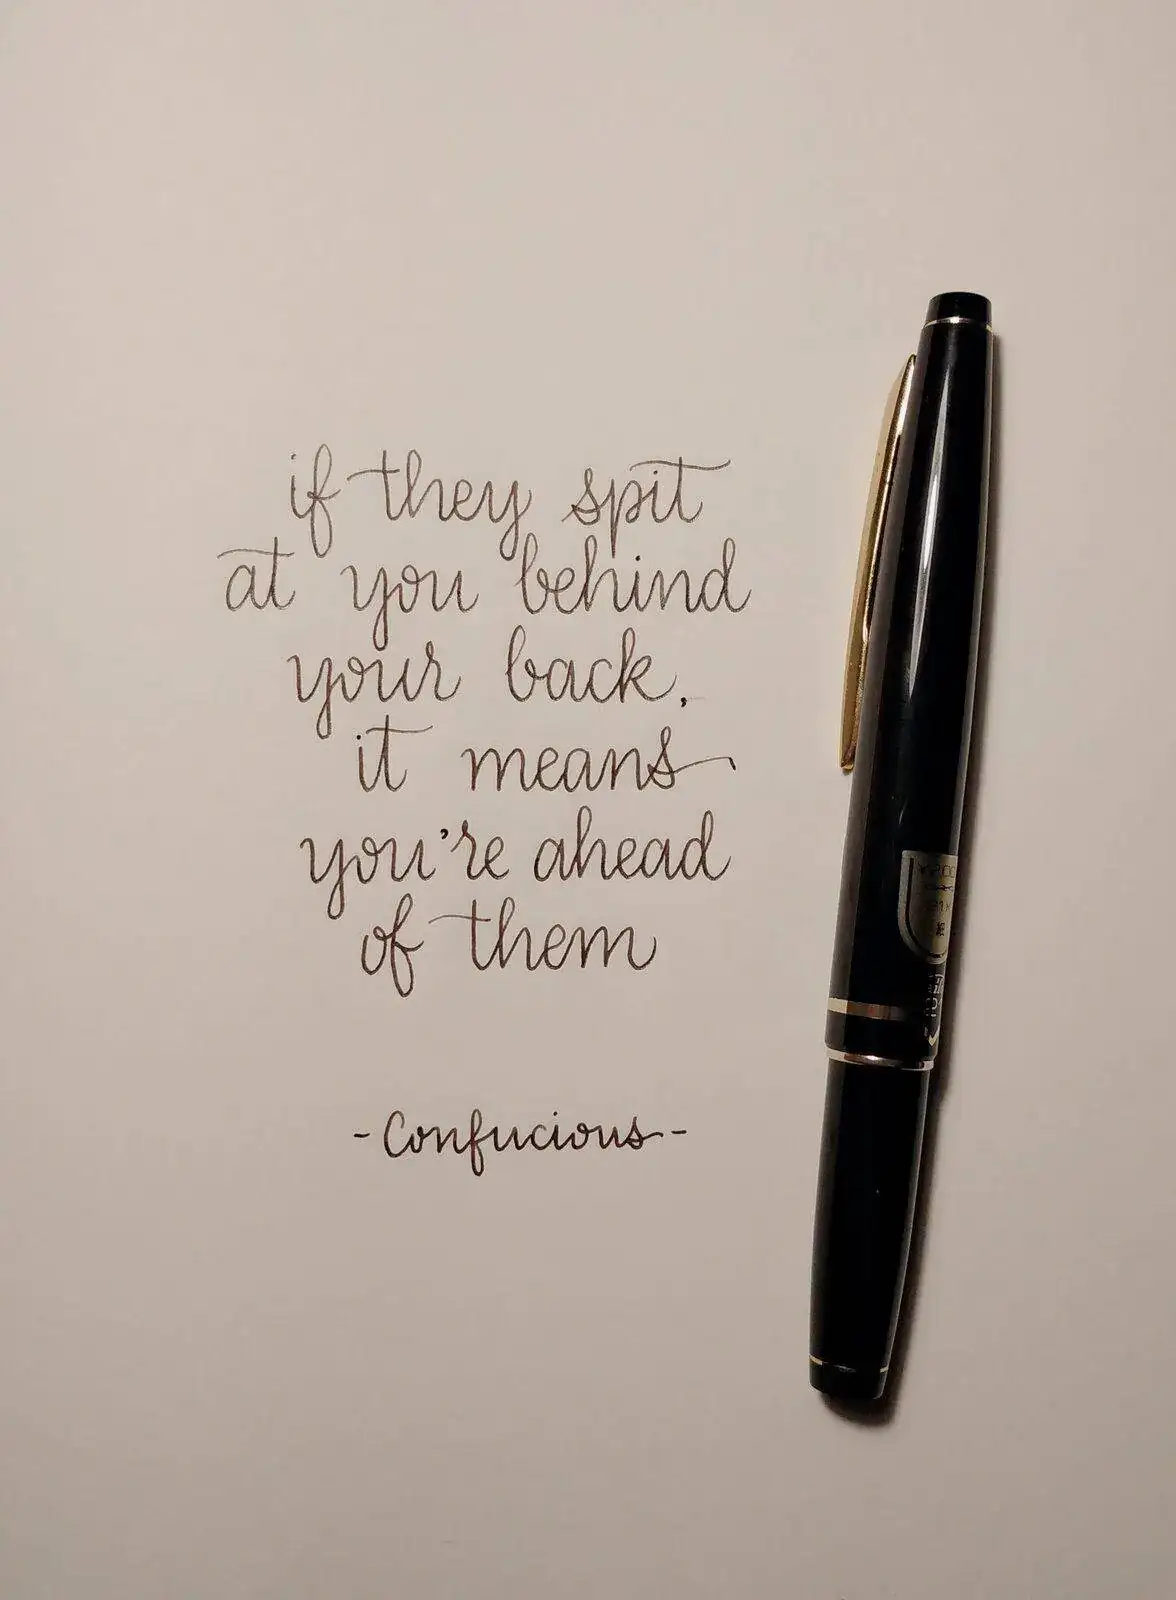 if they spit
at you behind
your back,
it means
you're ahead
of them
-Confucious-